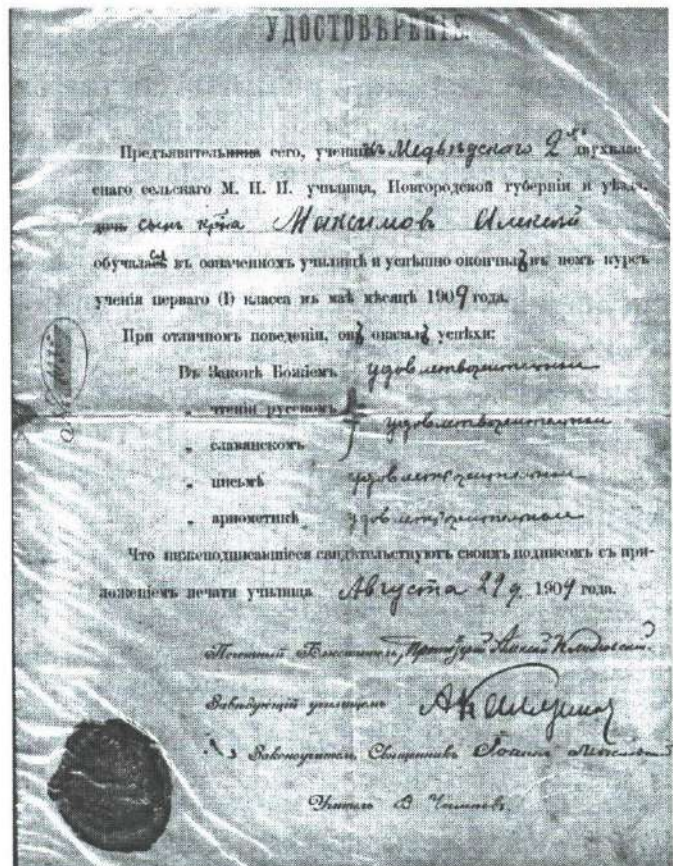 УДОСТОВѢРЕНІЕ.
Предъявитель сего, ученикъ Медвѣдскаго 2 двухклас-
снаго сельскаго М. Н. П. училища, Новгородской губерніи и уѣзда,
сынъ кр-на Максимов Алексѣй
обучался въ означенномъ училищѣ и успѣшно окончилъ въ немъ курсъ
ученія перваго (I) класса въ маѣ мѣсяцѣ 1909 года.
При отличномъ поведеніи, онъ оказалъ успѣхи:
Въ Законѣ Божіемъ удовлетворительные
„ чтеніи русскомъ
удовлетворительные
„ славянскомъ
„ письмѣ удовлетворительные
„ ариѳметикѣ удовлетворительные
Что нижеподписавшіеся свидѣтельствуютъ своимъ подписомъ съ при-
ложеніемъ печати училища Августа 29 д. 1909 года.
Почетный Блюститель, Протоіерей
Завѣдующій училищемъ
Законоучитель, Священникъ Іоаннъ
Учитель В.